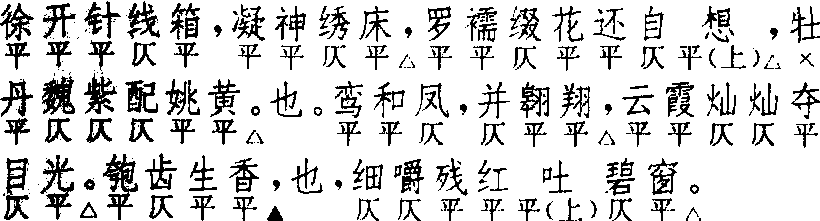 徐开针线箱，凝神绣床，罗襦缀花还自想，牡
平平平仄平 平平仄平△平平仄平平仄平(上)△×
丹魏紫配姚黄。也。鸾和凤，并翱翔，云霞灿灿夺
平仄仄仄平平△ 平平仄 仄平平△平平仄仄平
目光。匏齿生香，也，细嚼残红吐碧窗。
仄平△平仄平平▲ 仄仄平平平(上)仄平△